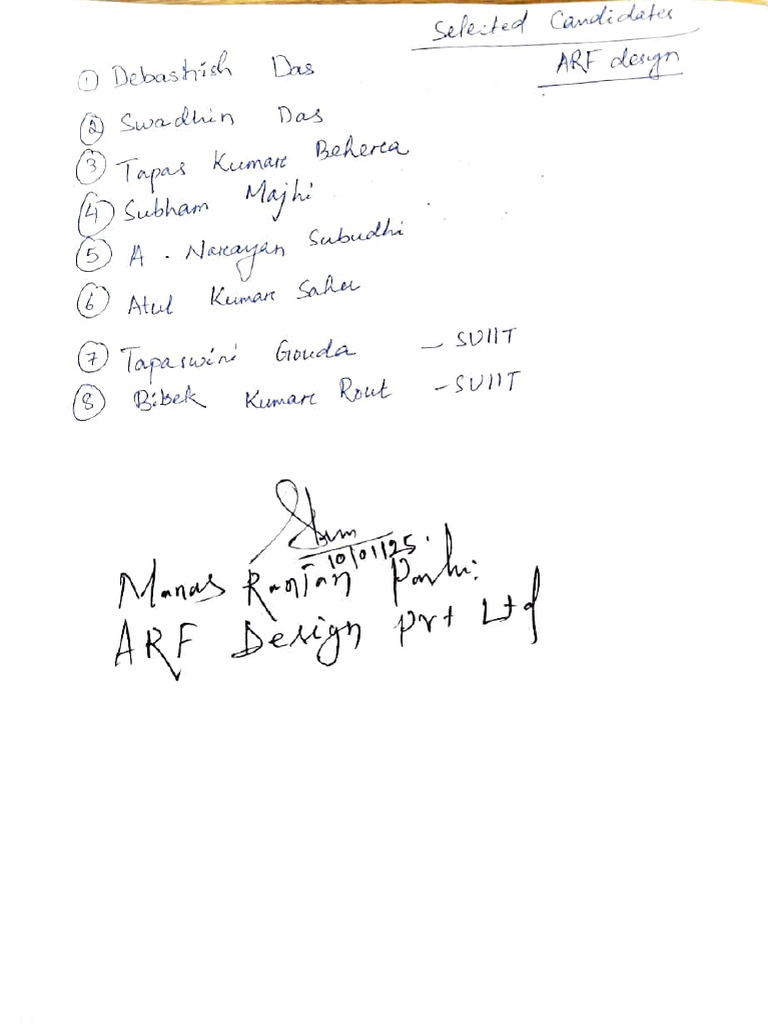 Selected Candidates
ARF design
① Debashish Das
② Swadhin Das
③ Tapas Kumar Behera
④ Subham Majhi
⑤ A. Narayan Subudhi
⑥ Atul Kumar Sahu
⑦ Tapaswini Gouda – SUIIT
⑧ Bibek Kumar Rout – SUIIT
10/01/25
Manas Ranjan
ARF Design pvt Ltd